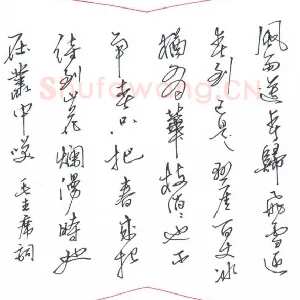 風雨送春歸飛雪迎
春到已是懸崖百丈冰
猶有華枝俏〻也不
爭春只把春來報
待到山花爛漫時她
在叢中笑 毛主席詞
Shufawang.CN